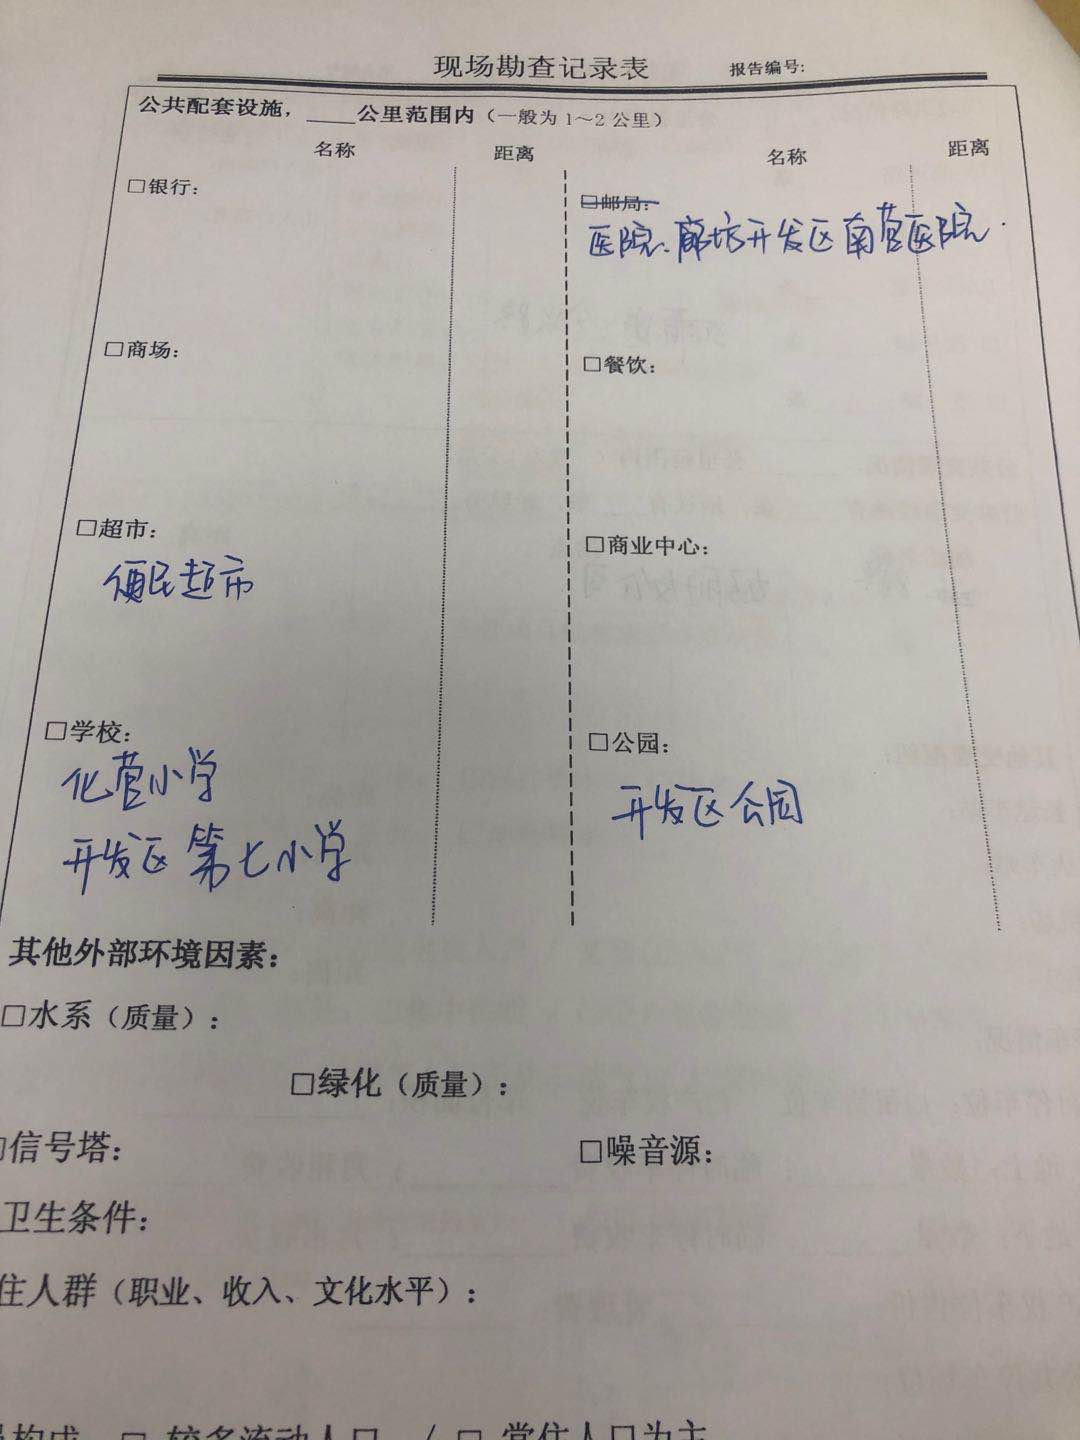 现场勘查记录表 报告编号:
公共配套设施，____公里范围内（一般为1～2公里）
名称 距离 名称 距离
□银行： □邮局：
医院、廊坊开发区南营医院.
□商场： □餐饮：
□超市： □商业中心：
便民超市
□学校： □公园：
化营小学 开发区公园
开发区第七小学
其他外部环境因素：
□水系（质量）：
□绿化（质量）：
□信号塔： □噪音源：
卫生条件：
住人群（职业、收入、文化水平）：
构成 □ 较多流动人口 / □ 常住人口为主